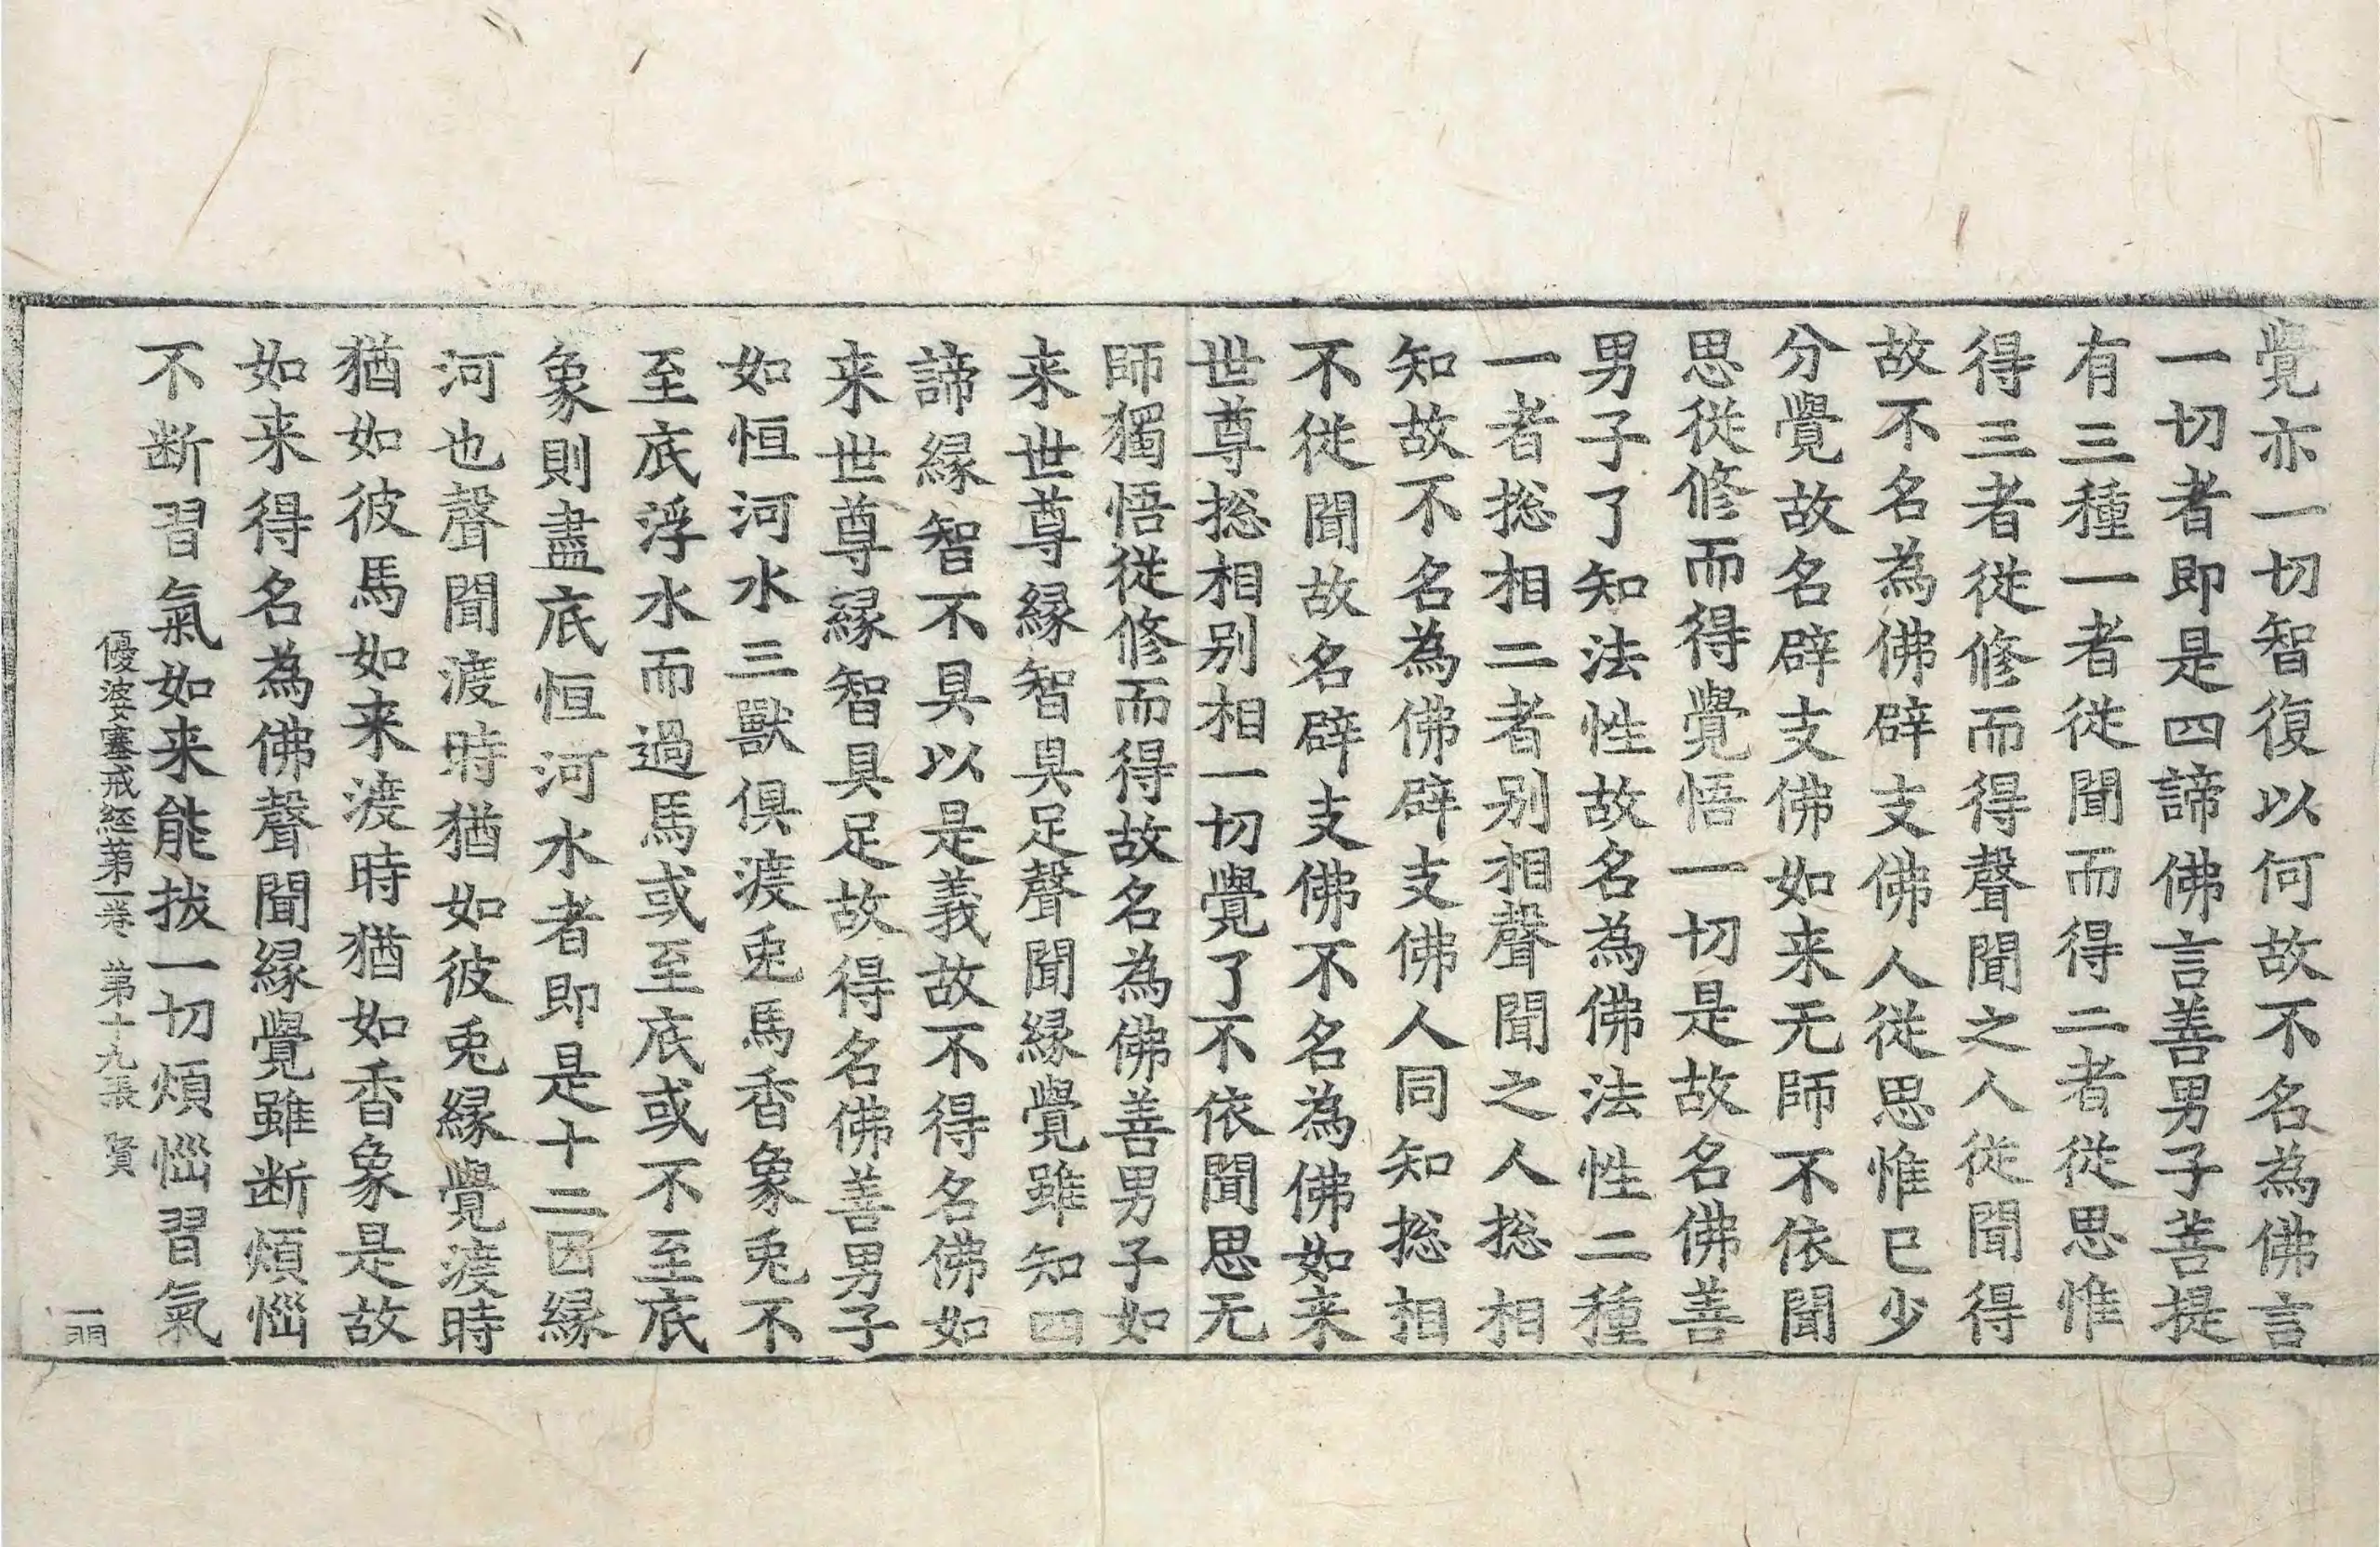 覺亦一切智復以何故不名為佛言
一切者即是四諦佛言善男子菩提
有三種一者從聞而得二者從思惟
得三者從修而得聲聞之人從聞得
故不名為佛辟支佛人從思惟已少
分覺故名辟支佛如来无師不依聞
思從修而得覺悟一切是故名佛善
男子了知法性故名為佛法性二種
一者捴相二者别相聲聞之人捴相
知故不名為佛辟支佛人同知捴相
不從聞故名辟支佛不名為佛如来
世尊捴相别相一切覺了不依聞思无
師獨悟從修而得故名為佛善男子如
来世尊緣智具足聲聞緣覺雖知四
諦緣智不具以是義故不得名佛如
来世尊緣智具足故得名佛善男子
如恒河水三獸俱渡兎馬香象兎不
至底浮水而過馬或至底或不至底
象則盡底恒河水者即是十二因緣
河也聲聞渡時猶如彼兎緣覺渡時
猶如彼馬如来渡時猶如香象是故
如来得名為佛聲聞緣覺雖断煩惱
不断習氣如来能拔一切煩惱習氣
優婆塞戒経第一卷 第十九張 賢